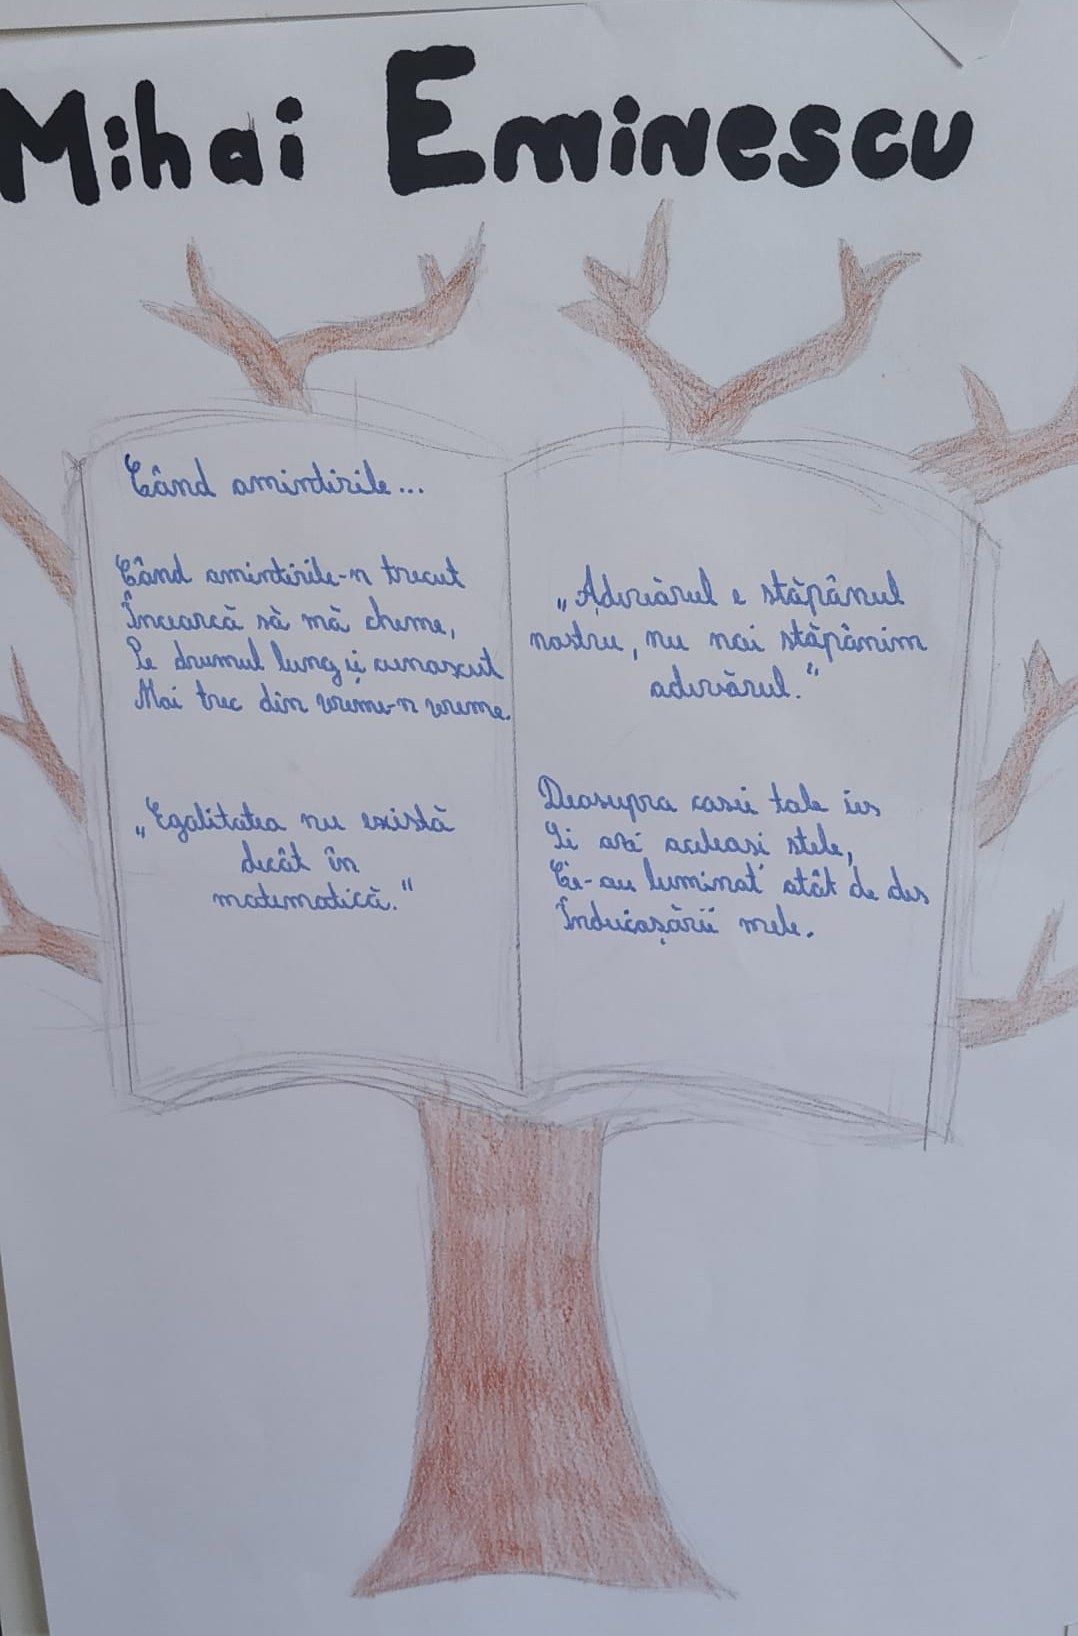 Mihai Eminescu
Când amintirile...
Când amintirile-n trecut
Încearcă să mă cheme,
Pe drumul lung și cunoscut
Mai trec din vreme-n vreme.
„Egalitatea nu există
decât în
matematică.“
„Adevărul e stăpânul
nostru, nu noi stăpânim
adevărul.“
Deasupra casei tale ies
Și azi aceleasi stele,
Ce-au luminat atât de des
Înduioșării mele.